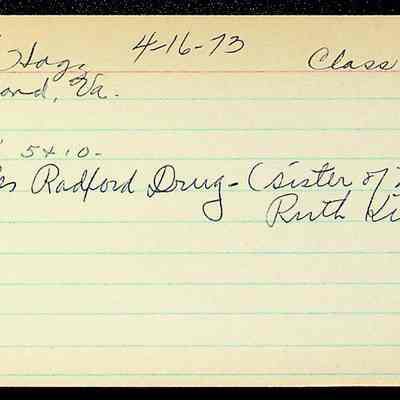 Hog. 4-16-73 Class
ond, Va.
5 & 10-
es Radford Drug- (sister of
Ruth Ki